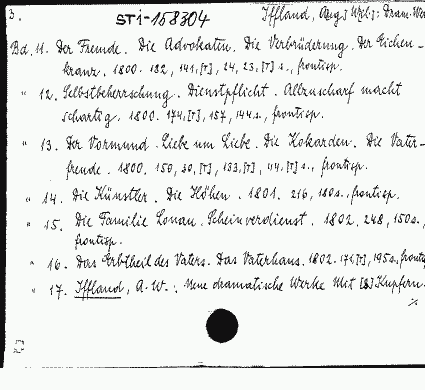 3.
ST i-158304
Iffland, Aug. Wil.: Dram. We
Bd. 11. Der Fremde. Die Advokaten. Die Verbrüderung. Der Eichen-
kranz. 1800. 182, 141,[1], 24, 23,[1] s., frontisp.
" 12. Selbstbeherrschung. Dienstpflicht. Allzuscharf macht
schartig. 1800. 174,[1], 157, 144 s., frontisp.
" 13. Der Vormund. Liebe um Liebe. Die Kokarden. Die Vater-
freude. 1800. 150, 30,[1], 133,[1], 44,[1] s., frontisp.
" 14. Die Künstler. Die Höhen. 1801. 216, 180 s., frontisp.
" 15. Die Familie Lonau. Scheinverdienst. 1802. 248, 150 s.,
frontisp.
" 16. Das Erbtheil des Vaters. Das Vaterhaus. 1802. 171,[1], 195 s., frontis
" 17. Iffland, A. W.: Neue dramatische Werke Mit [8] Kupfern.